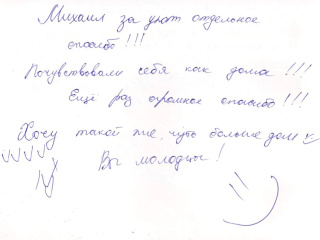 Михаил за уют отдельное
спасибо!!!
Почувствовали себя как дома!!!
Ещё раз огромное спасибо!!!
Хочу такой же, чуть больше дом
Вы молодцы!